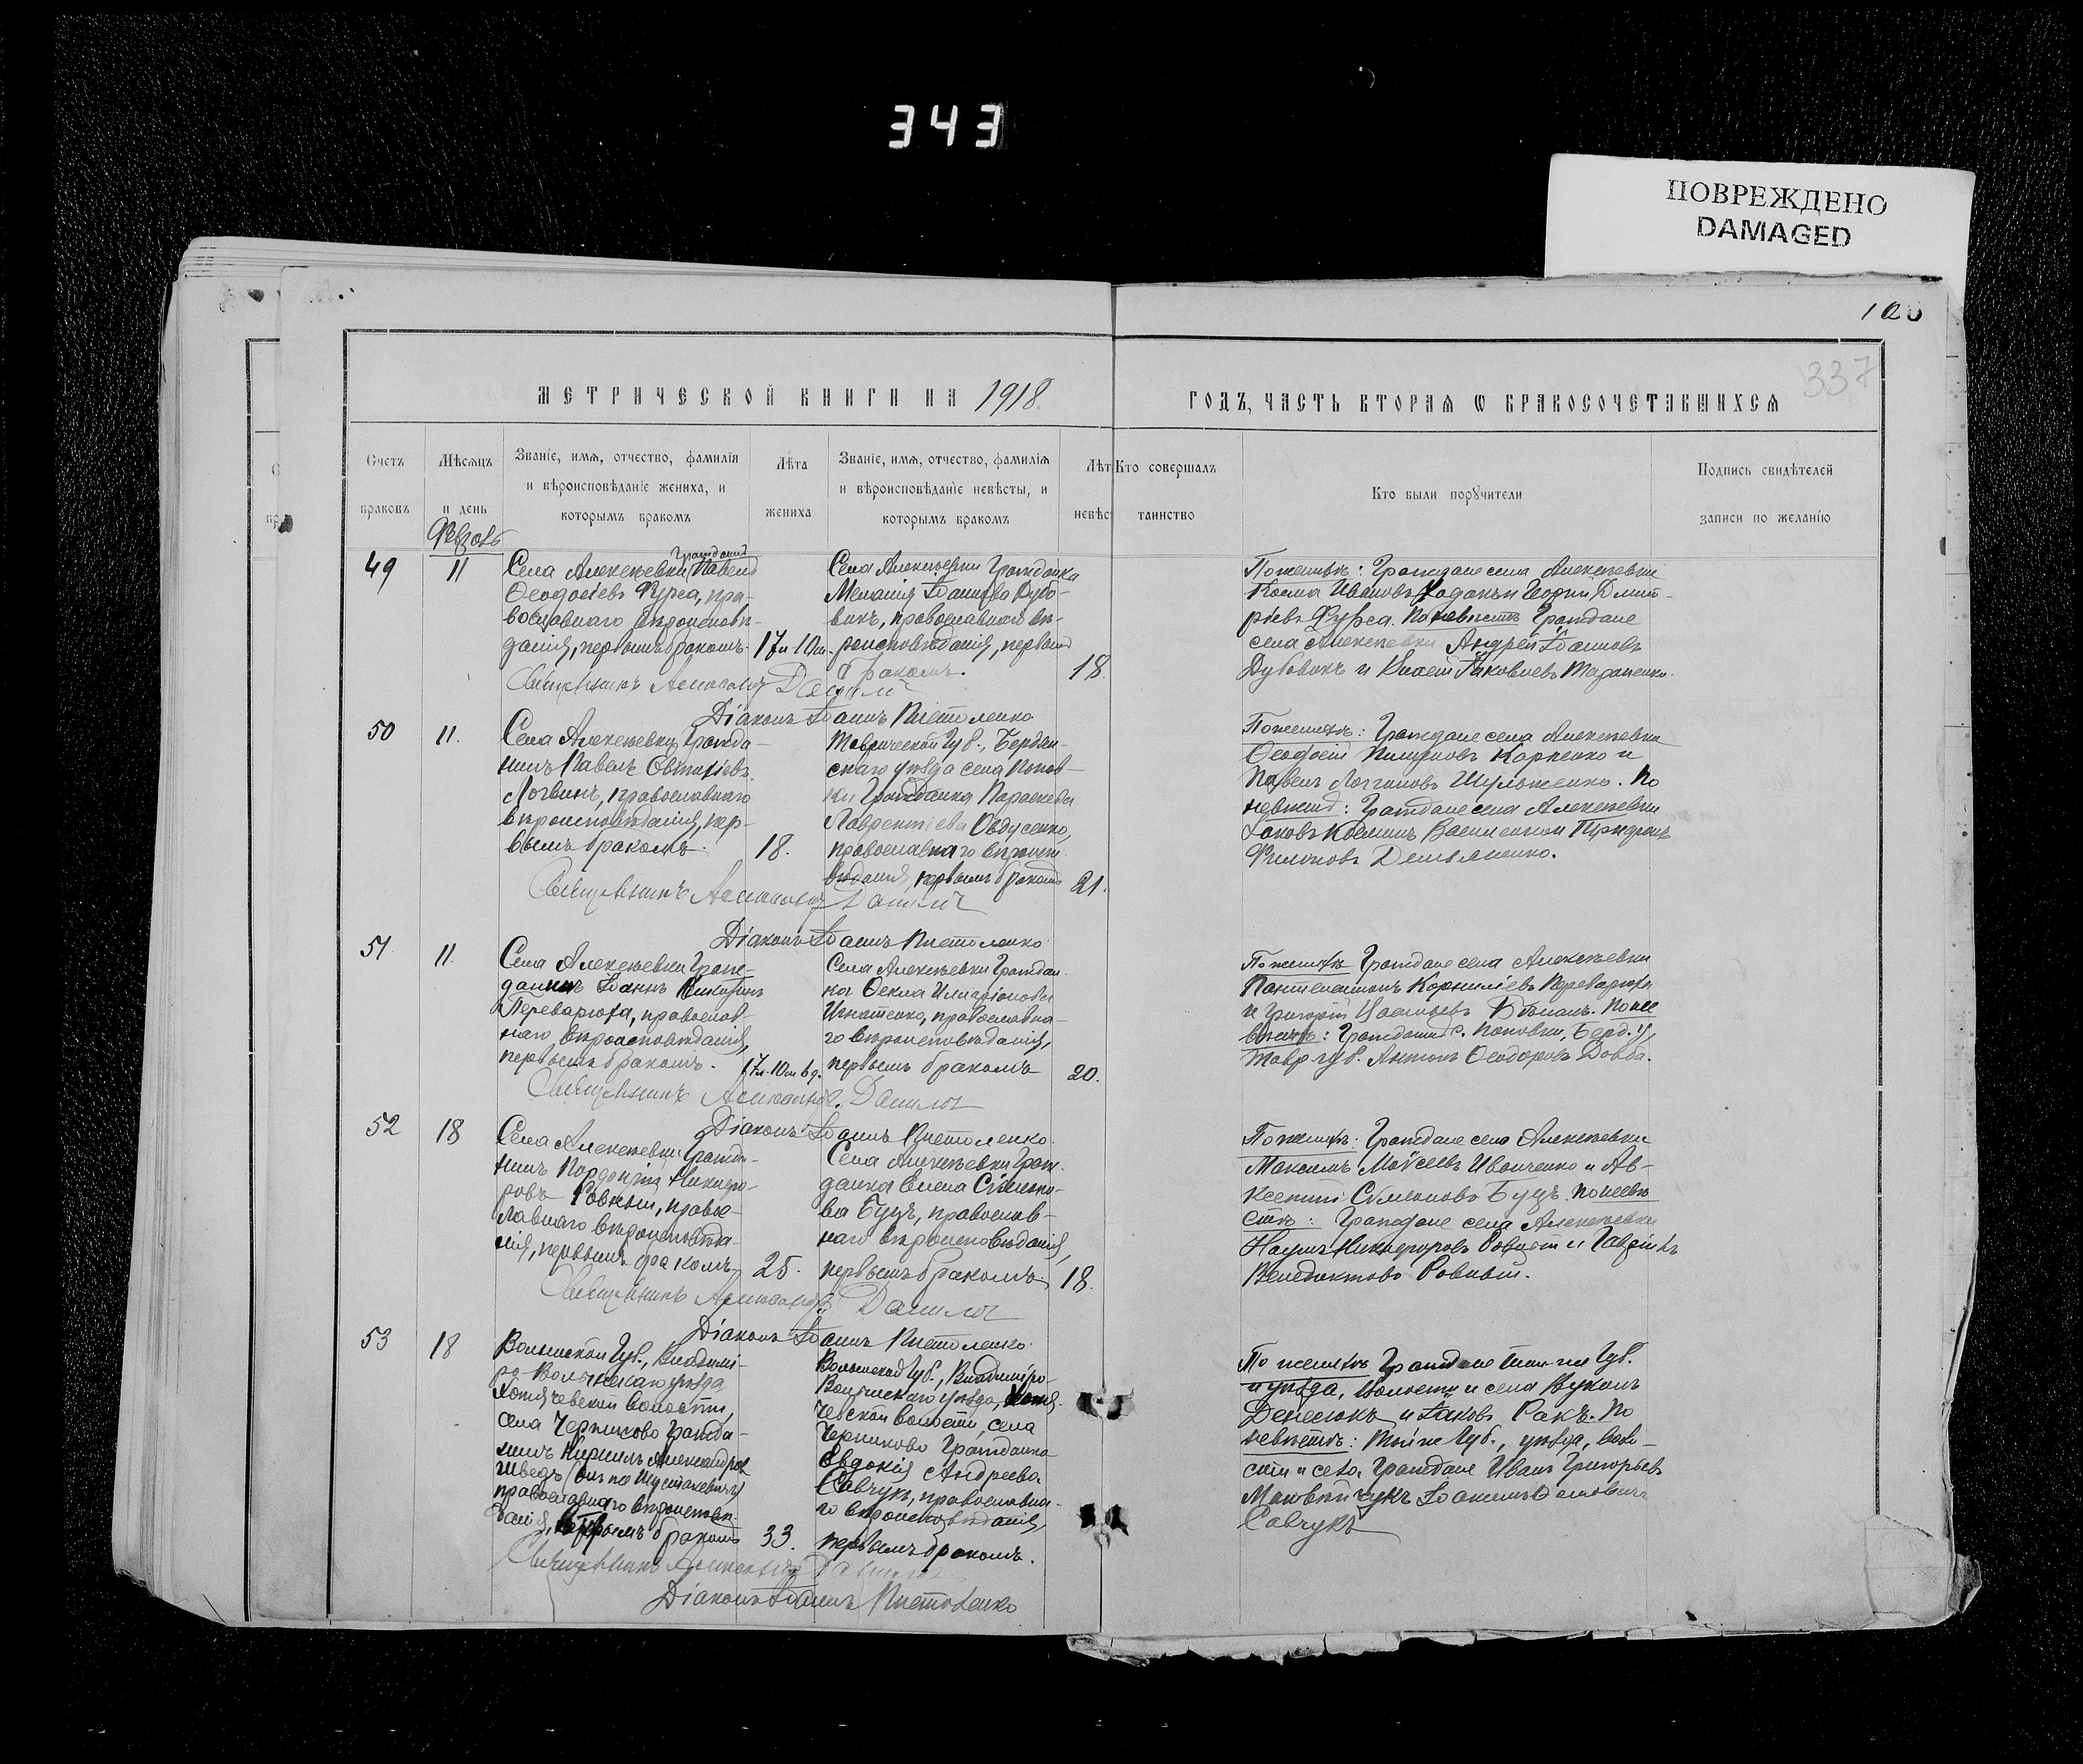 343
ПОВРЕЖДЕНО
DAMAGED
337
МЕТРИЧЕСКОЙ КНИГИ НА 1918.
ГОДЪ, ЧАСТЬ ВТОРАЯ Ѡ БРАКОСОЧЕТАВШИХСЯ
Счетъ браковъ
Мѣсяцъ и день
Званіе, имя, отчество, фамилія
и вѣроисповѣданіе жениха, и
которымъ бракомъ
Лѣта жениха
Званіе, имя, отчество, фамилія
и вѣроисповѣданіе невѣсты, и
которымъ бракомъ
Лѣт
невѣс
Кто совершалъ
таинство
Кто были поручители
Подпись свидѣтелей
записи по желанію
49
11
Села Алексѣевки Гражданинъ Павелъ
Ѳеодосіевъ Фурса, пра-
вославнаго вѣроисповѣ-
данія, первымъ бракомъ.
17 л 10 м.
Села Алексѣевки Гражданка
Меланія Іоаннова Дубо-
викъ, православнаго вѣ-
роисповѣданія, первымъ
бракомъ.
18.
Священникъ
Діаконъ Іоаннъ Пистоленко
По женихѣ: Граждане села Алексѣевки
Косма Ивановъ
Дмит-
ріевъ Фурса. По невѣстѣ Граждане
села Алексѣевки Андрей Іоанновъ
Дубовикъ и
Іаковлевъ Тараненко.
50
11.
Села Алексѣевки Гражда-
нинъ Павелъ Евтихіевъ
Логвинъ, православнаго
вѣроисповѣданія, пер-
вымъ бракомъ.
18.
Таврической Губ., Бердян-
скаго уѣзда села Попов-
ки Гражданка Параскева
Лаврентіева Овдусенко,
православнаго вѣроисп.
вѣданія, первымъ бракомъ
21.
Священникъ
Діаконъ Іоаннъ Пистоленко
По женихѣ: Граждане села Алексѣевки
Ѳеодосій
Карпенко и
Павелъ Логгиновъ Шульженко. По
невѣстѣ: Граждане села Алексѣевки
Іаковъ Косминъ
Филиповъ Демьяненко.
51
11.
Села Алексѣевки Граж-
данинъ Іоаннъ Никитинъ
Переварюха, православ-
наго вѣроисповѣданія,
первымъ бракомъ.
17 л. 10 м 6 д.
Села Алексѣевки Граждан-
ка Ѳекла Иларіонова
Игнатенко, православна-
го вѣроисповѣданія,
первымъ бракомъ
20.
Священникъ
Діаконъ Іоаннъ Пистоленко
По женихѣ Граждане села Алексѣевки
Пантелеимонъ Корниліевъ Переварюха
и Григорій
По не
вѣстѣ: Гражданинъ с. Поповки, Берд. у,
Тавр губ. Антонъ Ѳеодоровъ Довба.
52
18
Села Алексѣевки Гражда-
нинъ
Никифо-
ровъ Ровный, правос-
лавнаго вѣроисповѣда-
нія, первымъ бракомъ
25.
Села Алексѣевки Граж-
данка Елена Сѵмеоно-
ва Буцъ, православ-
наго вѣроисповѣданія,
первымъ бракомъ
18.
Священникъ
Діаконъ Іоаннъ Пистоленко
По женихѣ: Граждане села Алексѣевки
Максимъ Моѵсеевъ Иванченко и Ав-
ксентій Сѵмеоновъ Буцъ. По невѣ
стѣ: Граждане села Алексѣевки
Наумъ Никифоровъ Ровный и Гавріилъ
Венедиктовъ Ровный.
53
18
Волынской Губ., Владимі-
ро-Волынскаго уѣзда
Хотячевской волости,
села Черниково Гражда-
нинъ Кириллъ Александров
Шведъ
православнаго вѣроисповѣ-
данія, вторымъ бракомъ
33.
Волынской Губ., Владиміро-
Волынскаго уѣзда, Хотя-
чевской волости, села
Черниково Гражданка
Евдокія Андреева
Савчукъ, православна-
го вѣроисповѣданія,
первымъ бракомъ.
Священникъ
Діаконъ Іоаннъ Пистоленко
По женихѣ Граждане той-же Губ.
и уѣзда, волости и села
Денесюкъ и Іаковъ Ракъ. По
невѣстѣ: Той же Губ., уѣзда, воло-
сти и села Граждане Иванъ Григорьевъ
Савчукъ